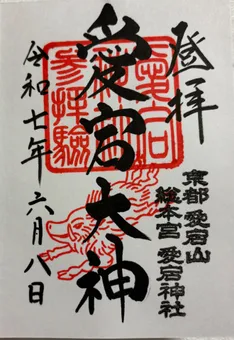 登拝
京都 愛宕山
総本宮 愛宕神社
愛宕大神
令和七年六月八日